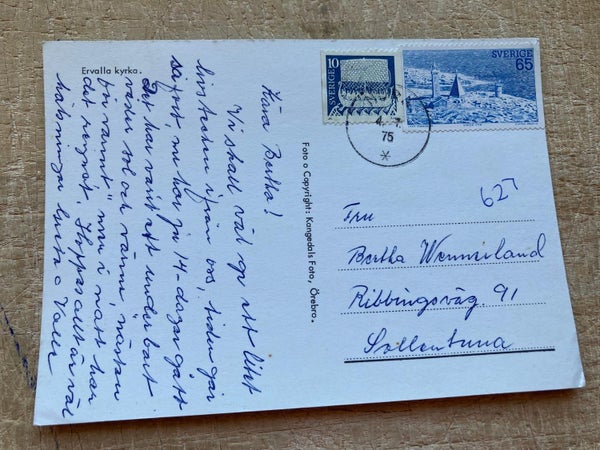 Ervalla kyrka.
Kära Bertha!
Vi skall väl ge ett litet
livstecken ifrån oss, tiden går
så fort, nu har ju 14-dagar gått
Det har varit ett underbart
väder sol och värme, nästan
för varmt" men i natt har
det regnat. Hoppas allt är väl
hälsningar
Foto o Copyright: Kangedals Foto, Örebro.
SVERIGE 10
SVERIGE
65
4. 7.
75
627
Fru
Bertha Wenneland
Ribbingsväg. 91
Sollentuna